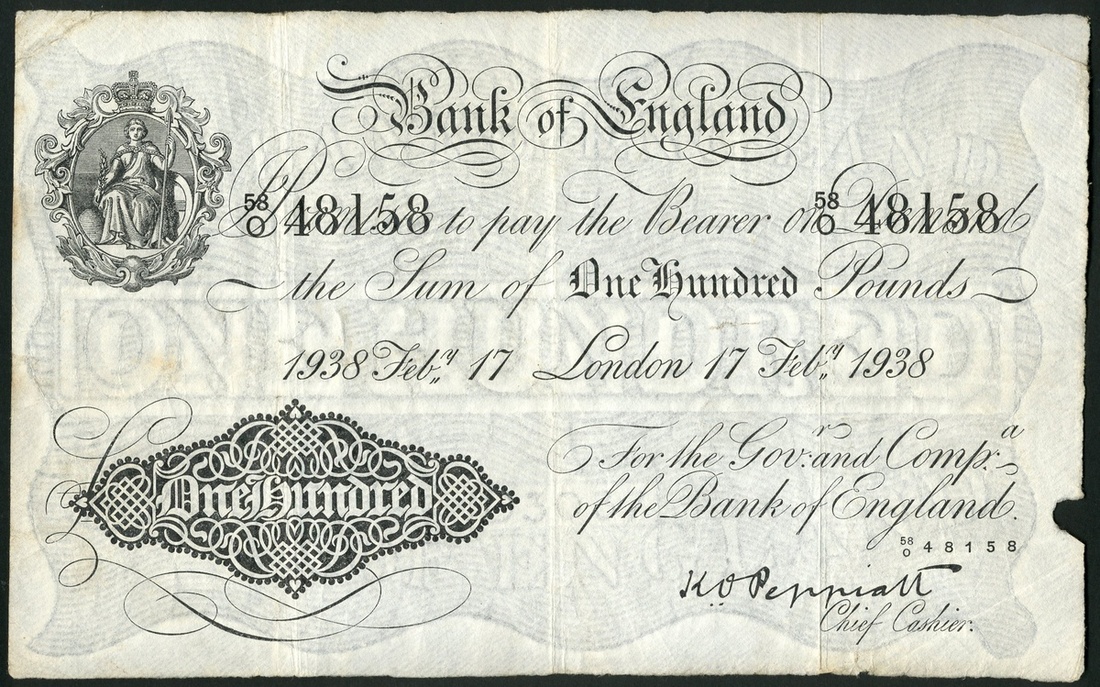 Bank of England
I Promise to pay the Bearer on Demand
58/O 48158 58/O 48158
the Sum of One Hundred Pounds
1938 Feb.y 17 London 17 Feb.y 1938
For the Gov.r and Comp.a
of the Bank of England.
One Hundred
58/O 48158
K.O. Peppiatt
Chief Cashier.